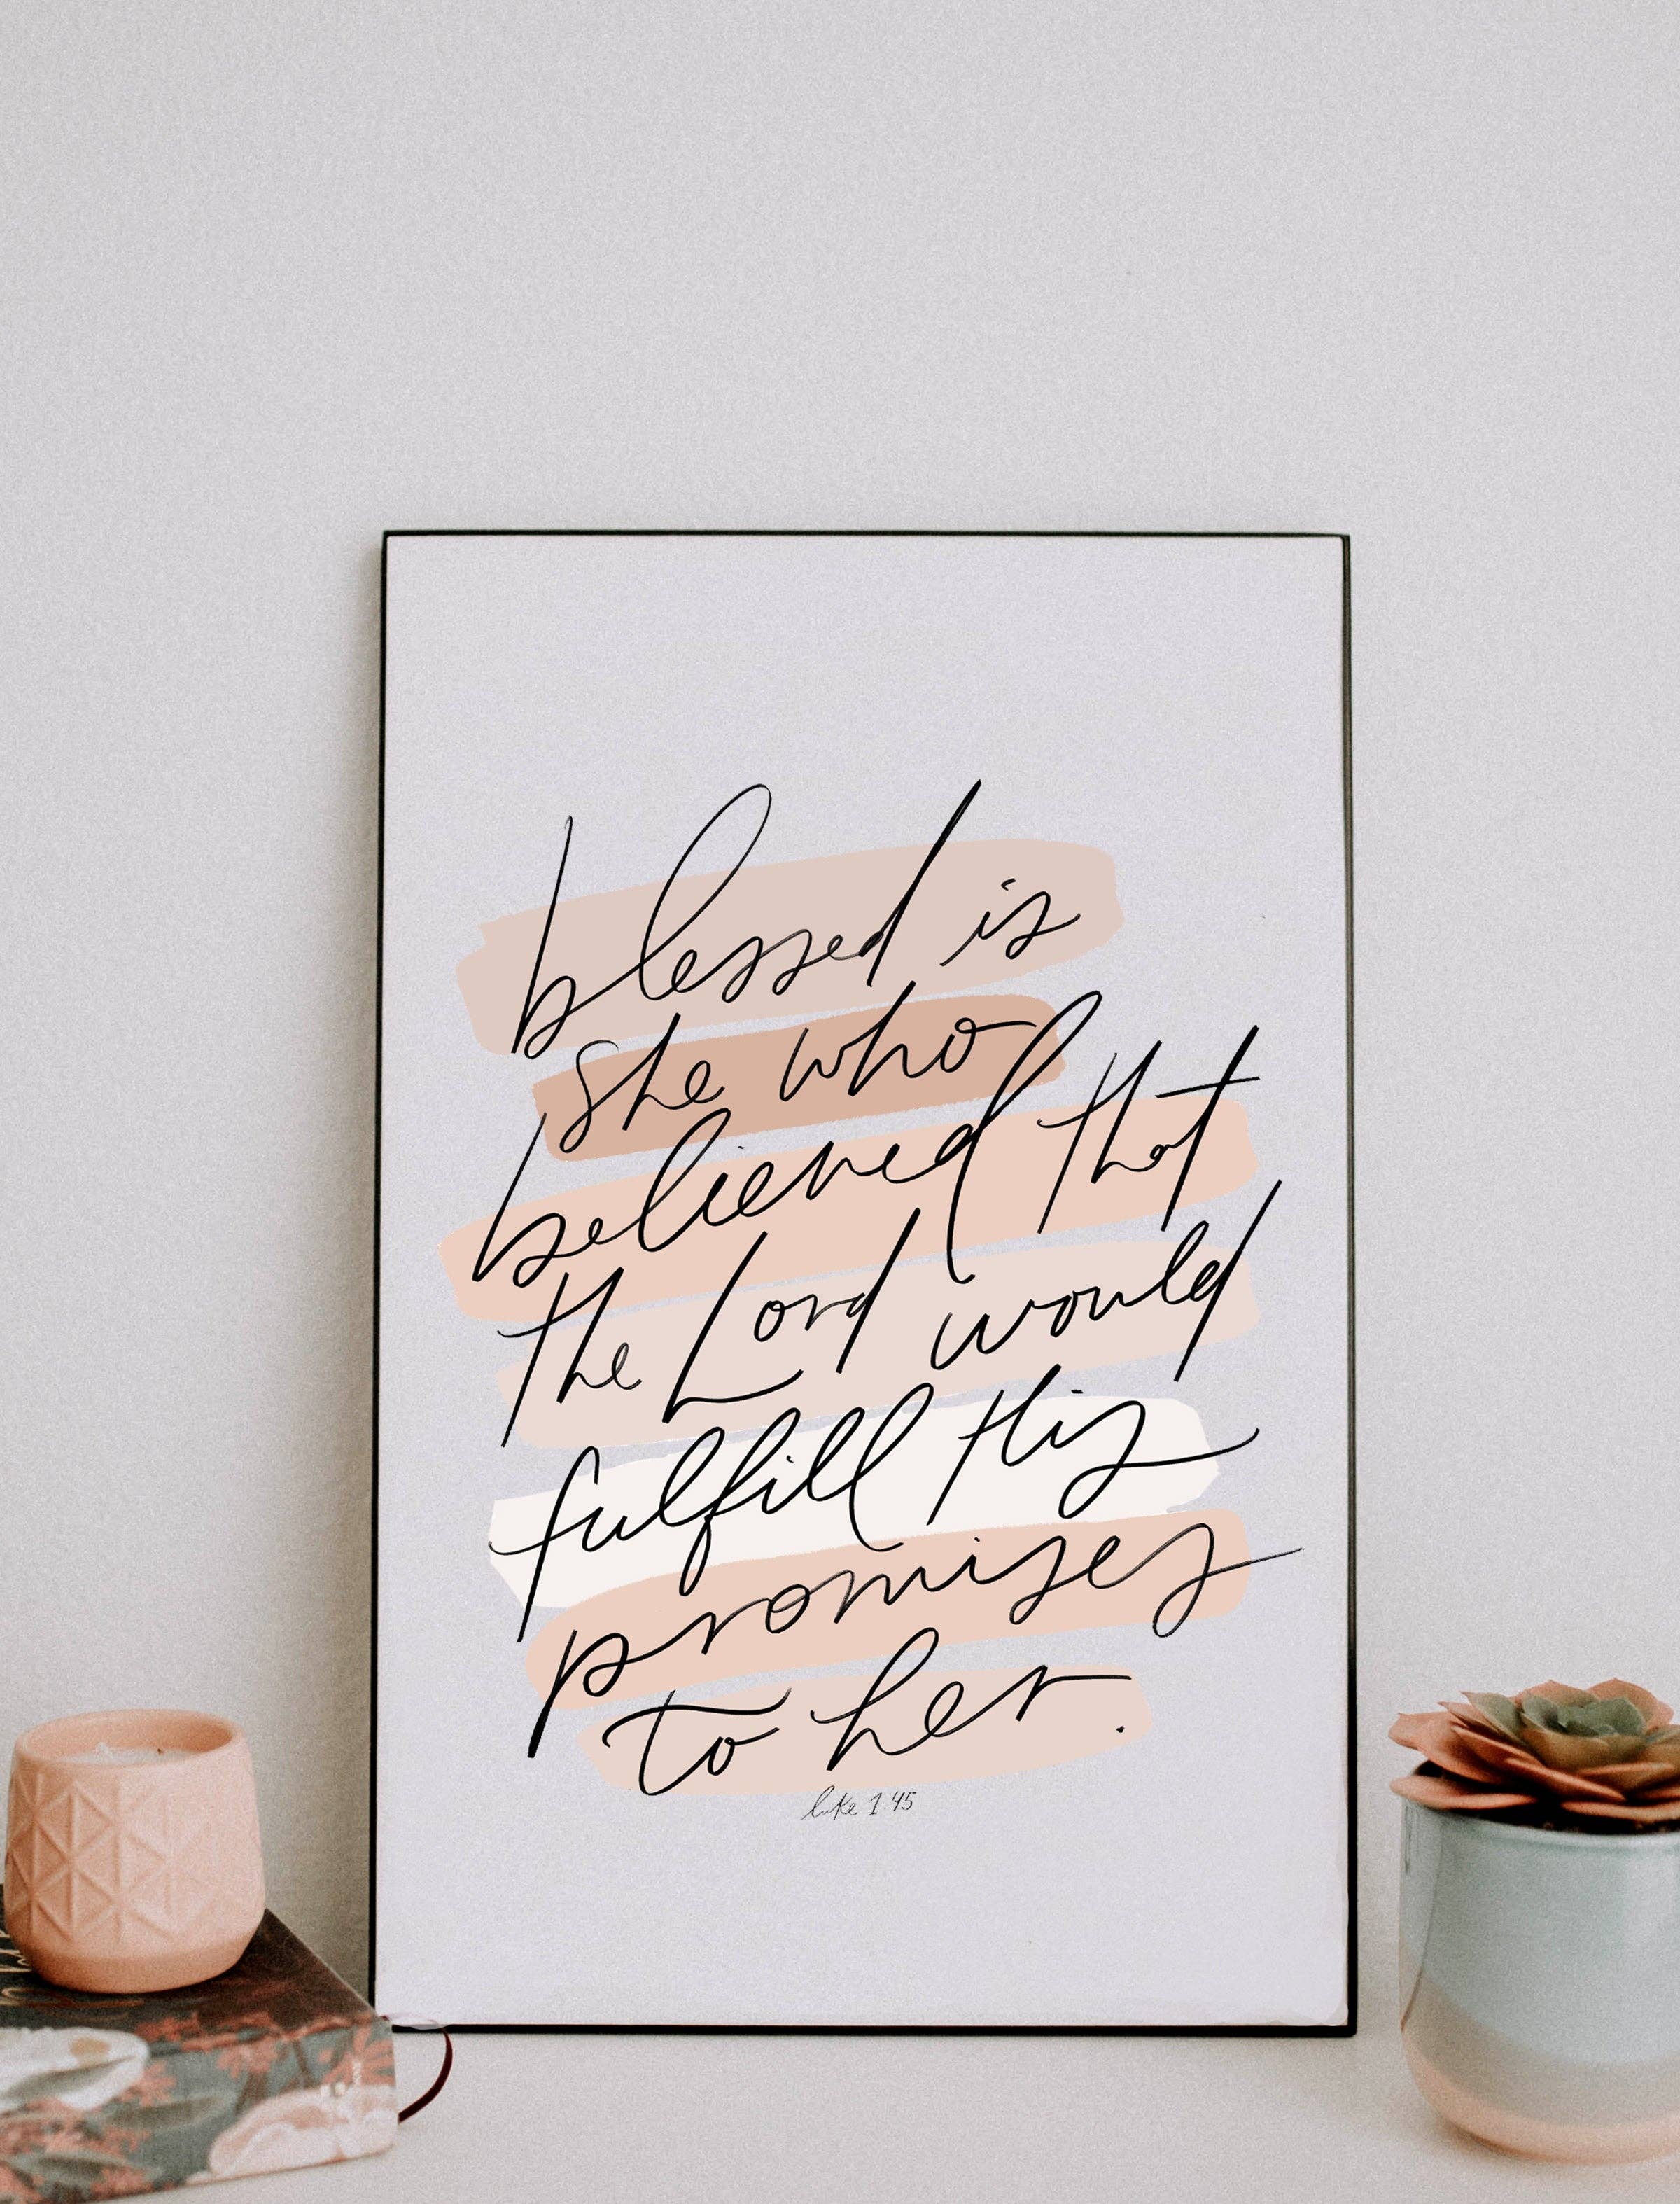 blessed is
she who
believed that
the Lord would
fulfill His
promises
to her.
luke 1:45